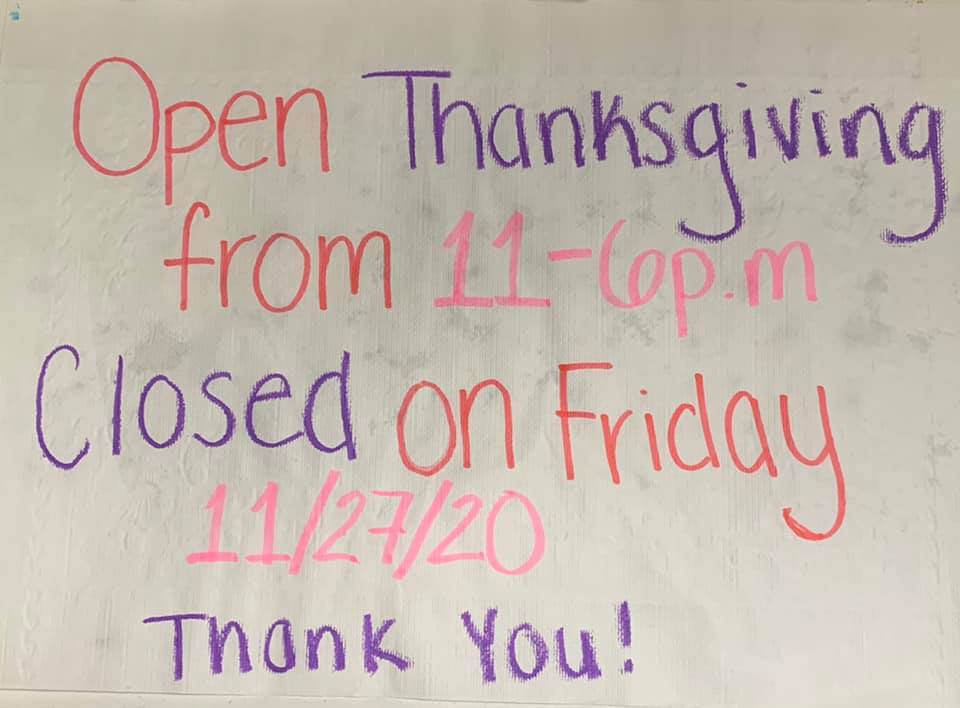 Open Thanksgiving
from 11-6p.m
Closed on Friday
11/27/20
Thank You!